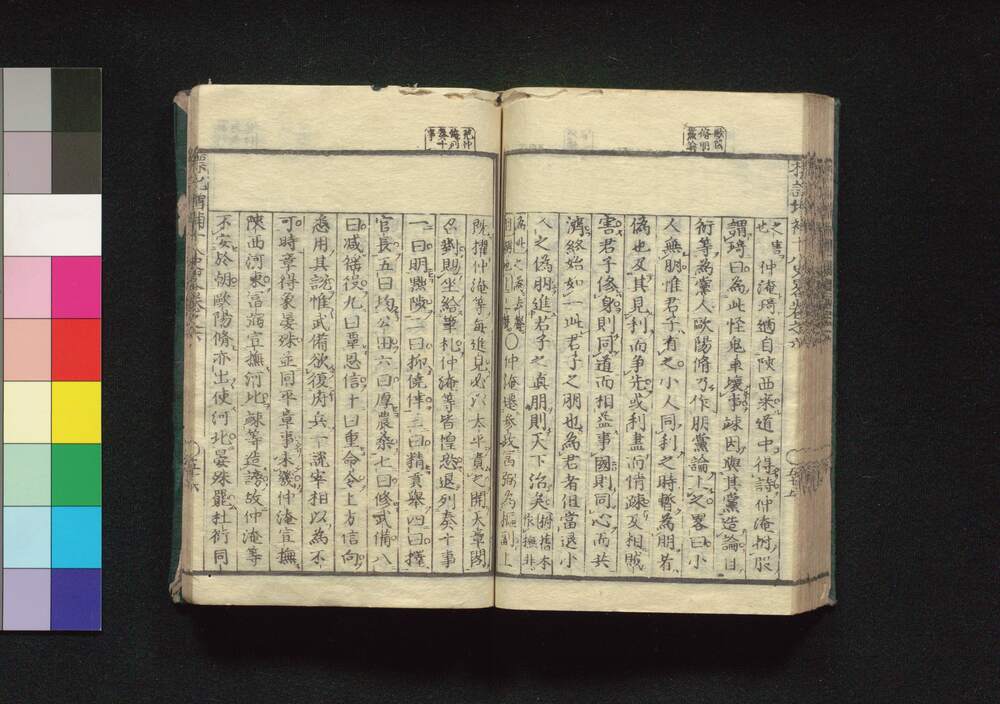 歐陽
脩朋
黨論
之事
也
仲淹琦適自陝西來道中得詩仲淹拊股
謂琦曰為此怪鬼輩壞事竦因與其黨造論目
衍等為黨人歐陽脩乃作朋黨論上之畧曰小
人無朋惟君子有之小人同利之時暫為朋者
偽也及其見利而爭先或利盡而情疎反相賊
害君子修身則同道而相益事國則同心而共
濟終始如一此君子之朋也為君者但當退小
人之偽朋進君子之真朋則天下治矣
〇仲淹遷參政富弼為樞副上
范仲
淹列
奏十
事
既擢仲淹等每進見必以太平責之開天章閣
召對賜坐給筆札仲淹等皆惶恐退列奏十事
一曰明黜陟二曰抑僥倖三曰精貢舉四曰擇
官長五曰均公田六曰厚農桑七曰修武備八
曰减徭役九曰覃恩信十曰重命令上方信向
悉用其說惟武備欲復府兵一說宰相以為不
可時章得象晏殊並同平章事未幾仲淹宣撫
陝西河東富弼宣撫河北竦等造謗故仲淹等
不安於朝歐陽脩亦出使河北晏殊罷杜衍同